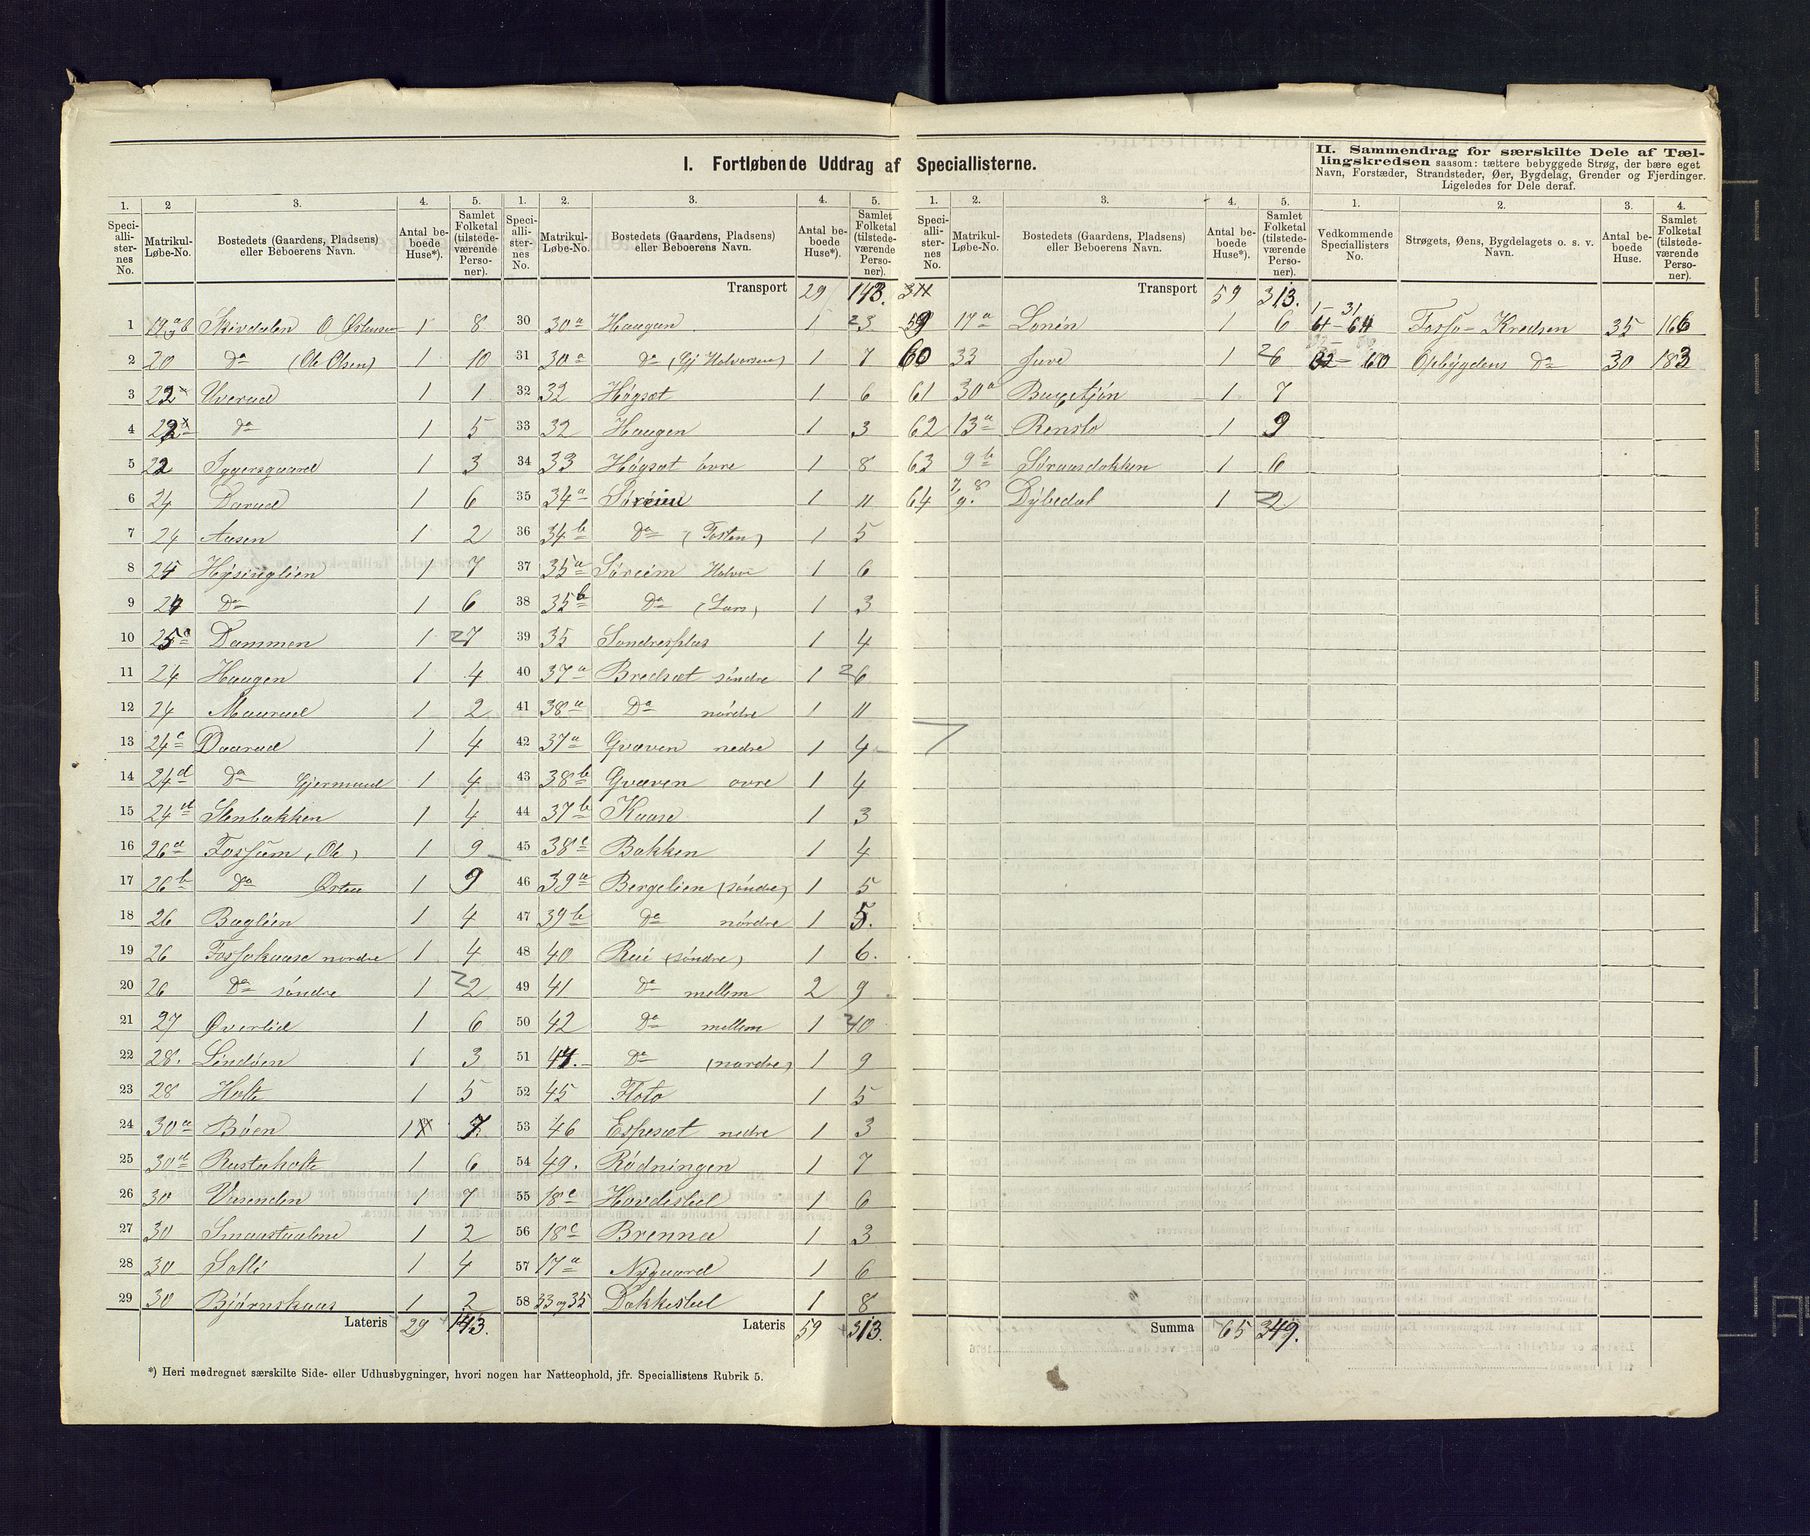 I. Fortløbende Uddrag af Speciallisterne.
1. Speciallisternes No. | 2. Matrikul-Løbe-No. | 3. Bostedets (Gaardens, Pladsens) eller Beboerens Navn. | 4. Antal beboede Huse*). | 5. Samlet Folketal (tilstedeværende Personer).
1 19 Skirdalen O. Østensen 1 8
2 20 Do (Ole Olsen) 1 10
3 22 Uverud 1 1
4 22 Do 1 5
5 22 Tygersgaard 1 3
6 24 Darud 1 6
7 24 Aasen 1 2
8 24 Høsinglien 1 7
9 24 Do 1 6
10 25a Dammen 1 7
11 24 Haugen 1 4
12 24 Maurud 1 2
13 24c Daarud 1 4
14 24d Do Gjermund 1 4
15 24d Stenbakken 1 4
16 26a Fossum (Ole) 1 9
17 26b Do Østen 1 9
18 26 Bæglien 1 4
19 26 Fossokaase nordre 1 4
20 26 Do søndre 1 2
21 27 Øverlid 1 6
22 28. Lindøen 1 3
23 28 Holte 1 5
24 30a Bøen 1 7
25 30d Rustaholte 1 6
26 30 Vasenden 1 7
27 30 Smaastuelene 1 2
28 30 Solli 1 4
29 30 Bjørnskaas 1 2
Lateris 29 143.
*) Heri medregnet særskilte Side- eller Udhusbygninger, hvori nogen har Natteophold, jfr. Speciallistens Rubrik 5.
1. Speciallisternes No. | 2. Matrikul-Løbe-No. | 3. Bostedets (Gaardens, Pladsens) eller Beboerens Navn. | 4. Antal beboede Huse*). | 5. Samlet Folketal (tilstedeværende Personer).
Transport 29 143.
30 30a Haugan 1 3
31 30a Do (Gj Halvorsen) 1 7
32 32 Høgsæt 1 6
33 32 Haugen 1 3
34 33 Høgsæt øvre 1 8
35 34a Søreim 1 11
36 34b Do (Tosten) 1 5
37 35a Søreim Halvor 1 6
38 35b Do (Lars) 1 3
39 35 Sondresplas 1 4
40 37a Bredsæt søndre 1 6
41 38a Do nórdre 1 11
42 37a Gvæven nedre 1 4
43 38b Gvæven øvre 1 4
44 37b Kaase 1 3
45 38c Bakken 1 4
46 39a Bergelien (søndre) 1 5
47 39b Do nórdre 1 5.
48 40 Rui (søndre) 1 6.
49 41 Do mellem 2 9
50 42 Do mellem 1 10
51 44. Do (nordre) 1 9
52 45 Floto 1 5
53 46 Espesæt nedre 1 3
54 49. Rødningen 1 7
55 18c Hovdestul 1 6
56 18c Brenna 1 3
57 17a Nygaard 1 6
58 33 og 35 Dokkestul 1 8
Lateris 59 313.
1. Speciallisternes No. | 2. Matrikul-Løbe-No. | 3. Bostedets (Gaardens, Pladsens) eller Beboerens Navn. | 4. Antal beboede Huse*). | 5. Samlet Folketal (tilstedeværende Personer).
Transport 59 313.
59 17a Lonin 1 6
60 33 Juve 1 6
61 30a Buxetjøn 1 7
62 13a Renslo 1 9
63 9b Søraasdokken 1 6
64 7, 8 9. Dybedal 1 2
Summa 65 349.
II. Sammendrag for særskilte Dele af Tællingskredsen saasom: tættere bebyggede Strøg, der bære eget Navn, Forstæder, Strandsteder, Øer, Bygdelag, Grender og Fjerdinger. Ligeledes for Dele deraf.
1. Vedkommende Speciallisters No. | 2. Strøgets, Øens, Bygdelagets o. s. v. Navn. | 3. Antal beboede Huse. | 4. Samlet Folketal (tilstedeværende Personer).
1-31 61-64 Fosso-Kredsen 35 166
32-60 Opbygdens Do 30 183